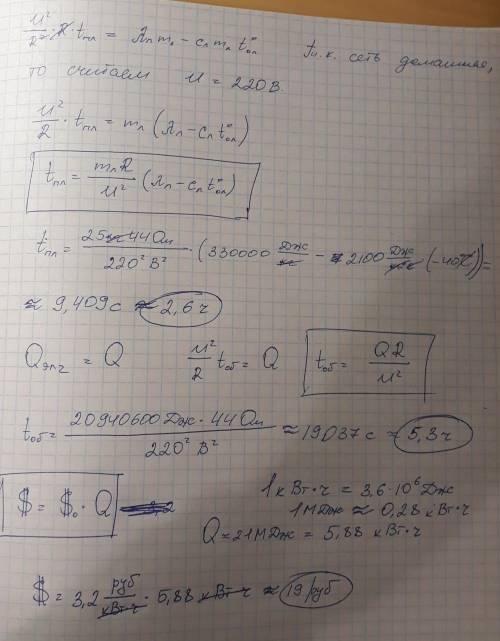 U²/R² · R · tпл = λл mл − cл mл t°ол   т.к. сеть домашняя,
то считаем U = 220 В.
U²/R · tпл = mл (λл − cл t°ол)
tпл = mл R / U² (λл − cл t°ол)
tпл = 25 кг 44 Ом / 220² В² · (330000 Дж/кг − 2100 Дж/кг°C (−40°C)) =
≈ 9,409 с ≈ 2,6 ч
Qэл2 = Q   U²/R tоб = Q   tоб = QR / U²
tоб = 20940600 Дж · 44 Ом / 220² В² ≈ 19037 с ≈ 5,3 ч
1 кВт·ч = 3,6·10⁶ Дж
1 МДж ≈ 0,28 кВт·ч
$ = $₀ · Q
Q = 21 МДж = 5,88 кВт·ч
$ = 3,2 руб/кВт·ч · 5,88 кВт·ч ≈ 19 руб